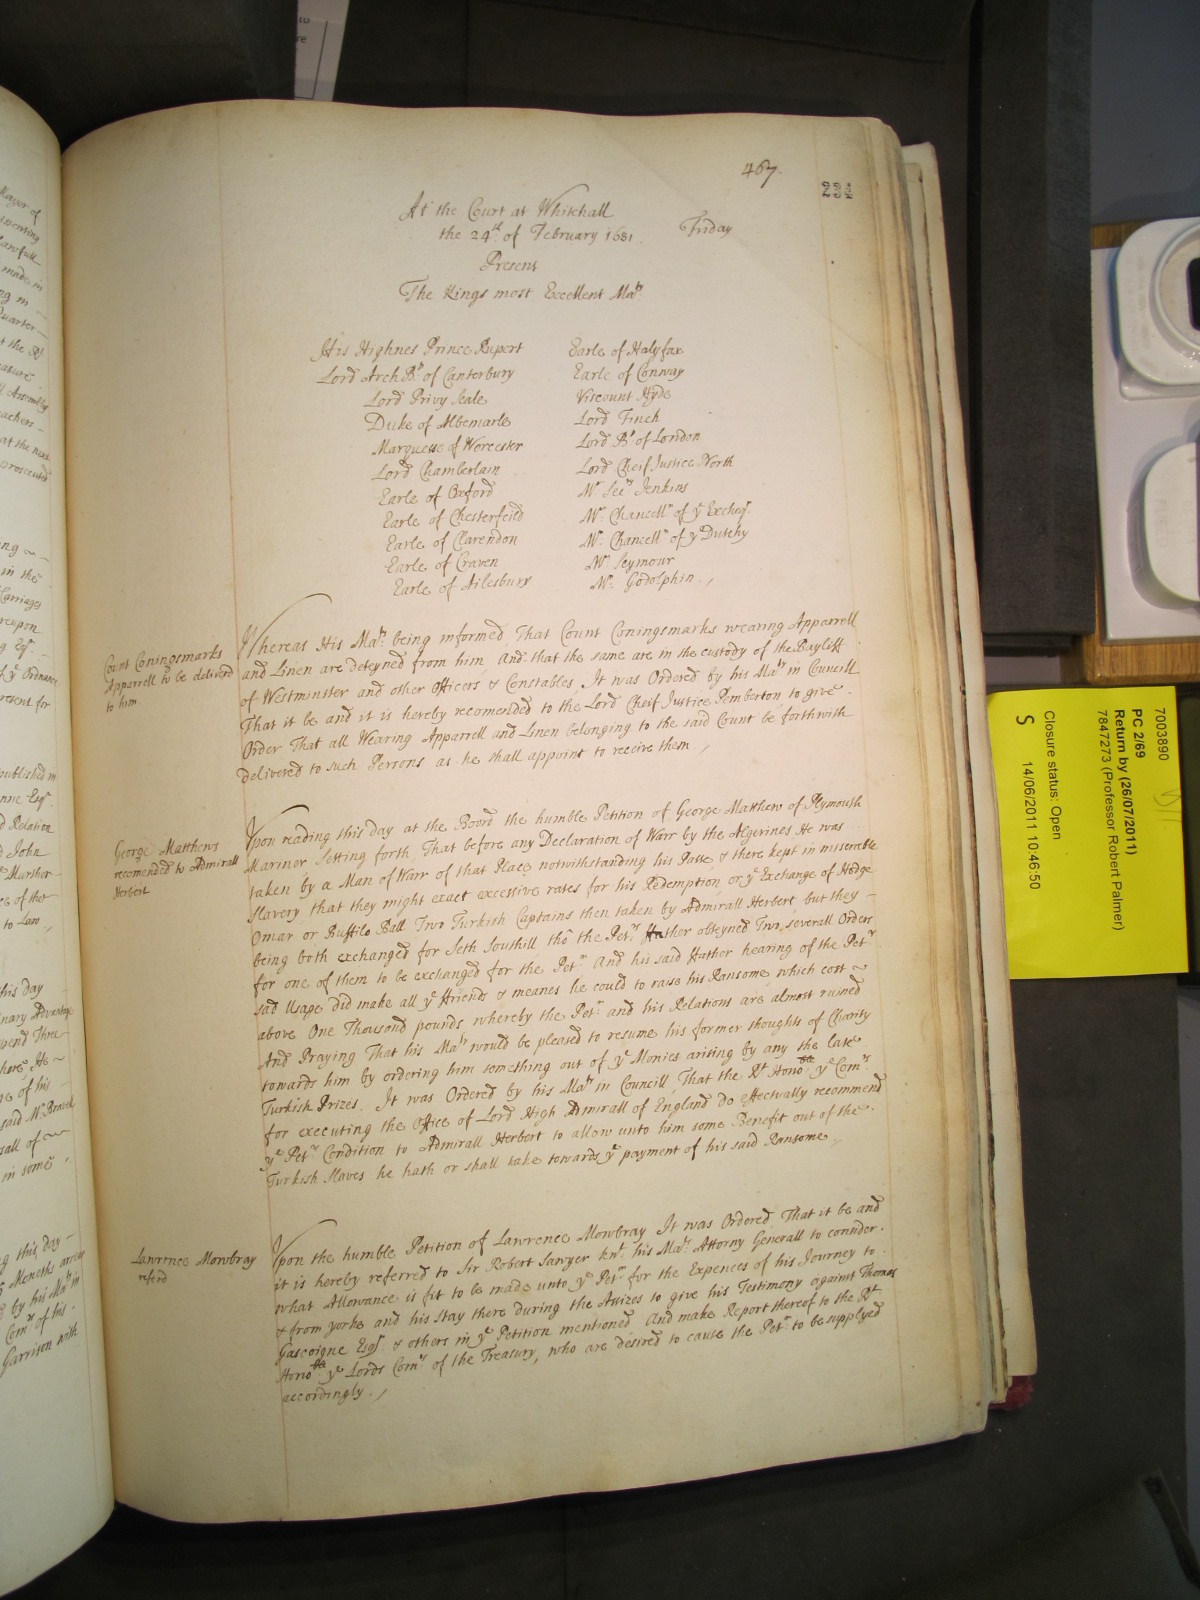 467.
At the Court at Whitehall
the 24th of February 1681. Friday
Present
The Kings most Excellent Maty
His Highnes Prince Rupert
Lord Arch Bp of Canterbury
Lord Privy Seale
Duke of Albemarle
Marquesse of Worcester
Lord Chamberlain
Earle of Oxford
Earle of Chesterfeild
Earle of Clarendon
Earle of Craven
Earle of Ailesbury
Earle of Halyfax
Earle of Conway
Viscount Hyde
Lord Finch
Lord Bp of London
Lord Cheif Justice North
Mr Secry Jenkins
Mr Chancellr of ye Excheqr
Mr Chancellr of ye Dutchy
Mr Seymour
Mr Godolphin
Count Coningsmarks
Apparrell to be deliverd
to him
Whereas His Maty being informed That Count Coningsmarks wearing Apparrell
and Linen are deteyned from him And that the same are in the custody of the Bayliff
of Westminster and other Officers & Constables, It was Ordered by his Maty in Councill
That it be and it is hereby recomended to the Lord Cheif Justice Pemberton to give
Order That all Wearing Apparrell and Linen belonging to the said Count be forthwith
delivered to such Persons as he shall appoint to receive them
George Matthews
recomended to Admirall
Herbert
Upon reading this day at the Boord the humble Petition of George Matthew of Plymouth
Mariner Setting forth, That before any Declaration of Warr by the Algerines He was
taken by a Man of Warr of that Place notwithstanding his Passe & there kept in miserable
slavery that they might exact excessive rates for his Redemption or ye Exchange of Hodge
Omar or Buffilo Ball Two Turkish Captains then taken by Admirall Herbert but they
being both exchanged for Seth Southill tho the Petrs ffather obteyned Two severall Orders
for one of them to be exchanged for the Petr And his said ffather hearing of the Petrs
sad Usage did make all ye ffriends & meanes he could to raise his Ransome which cost
above One Thousand pounds whereby the Petr and his Relations are almost ruined
And Praying That his Maty would be pleased to resume his former thoughts of Charity
towards him by ordering him something out of ye Monies arising by any the late
Turkish Prizes. It was Ordered by his Maty in Councill, That the Rt Honoble ye Comrs
for executing the Office of Lord High Admirall of England do effectually recommend
ye Petrs Condition to Admirall Herbert to allow unto him some Benefit out of the
Turkish Slaves he hath or shall take towards ye payment of his said Ransome
Lawrence Mowbray
referd
Upon the humble Petition of Lawrence Mowbray It was Ordered That it be and
it is hereby referred to Sr Robert Sawyer Knt his Mats Attorny Generall to consider
what Allowance is fit to be made unto ye Petr for the Expences of his Journey to
& from Yorke and his Stay there during the Assizes to give his Testimony against Thomas
Gascoigne Esqr & others in ye Petition mentioned And make Report thereof to the Rt
Honoble ye Lords Comrs of the Treasury, who are desired to cause the Petr to be supplyed
accordingly.
7003890
PC 2/69
Return by (26/07/2011)
7847273 (Professor Robert Palmer)
Closure status: Open
S 14/06/2011 10:46:50